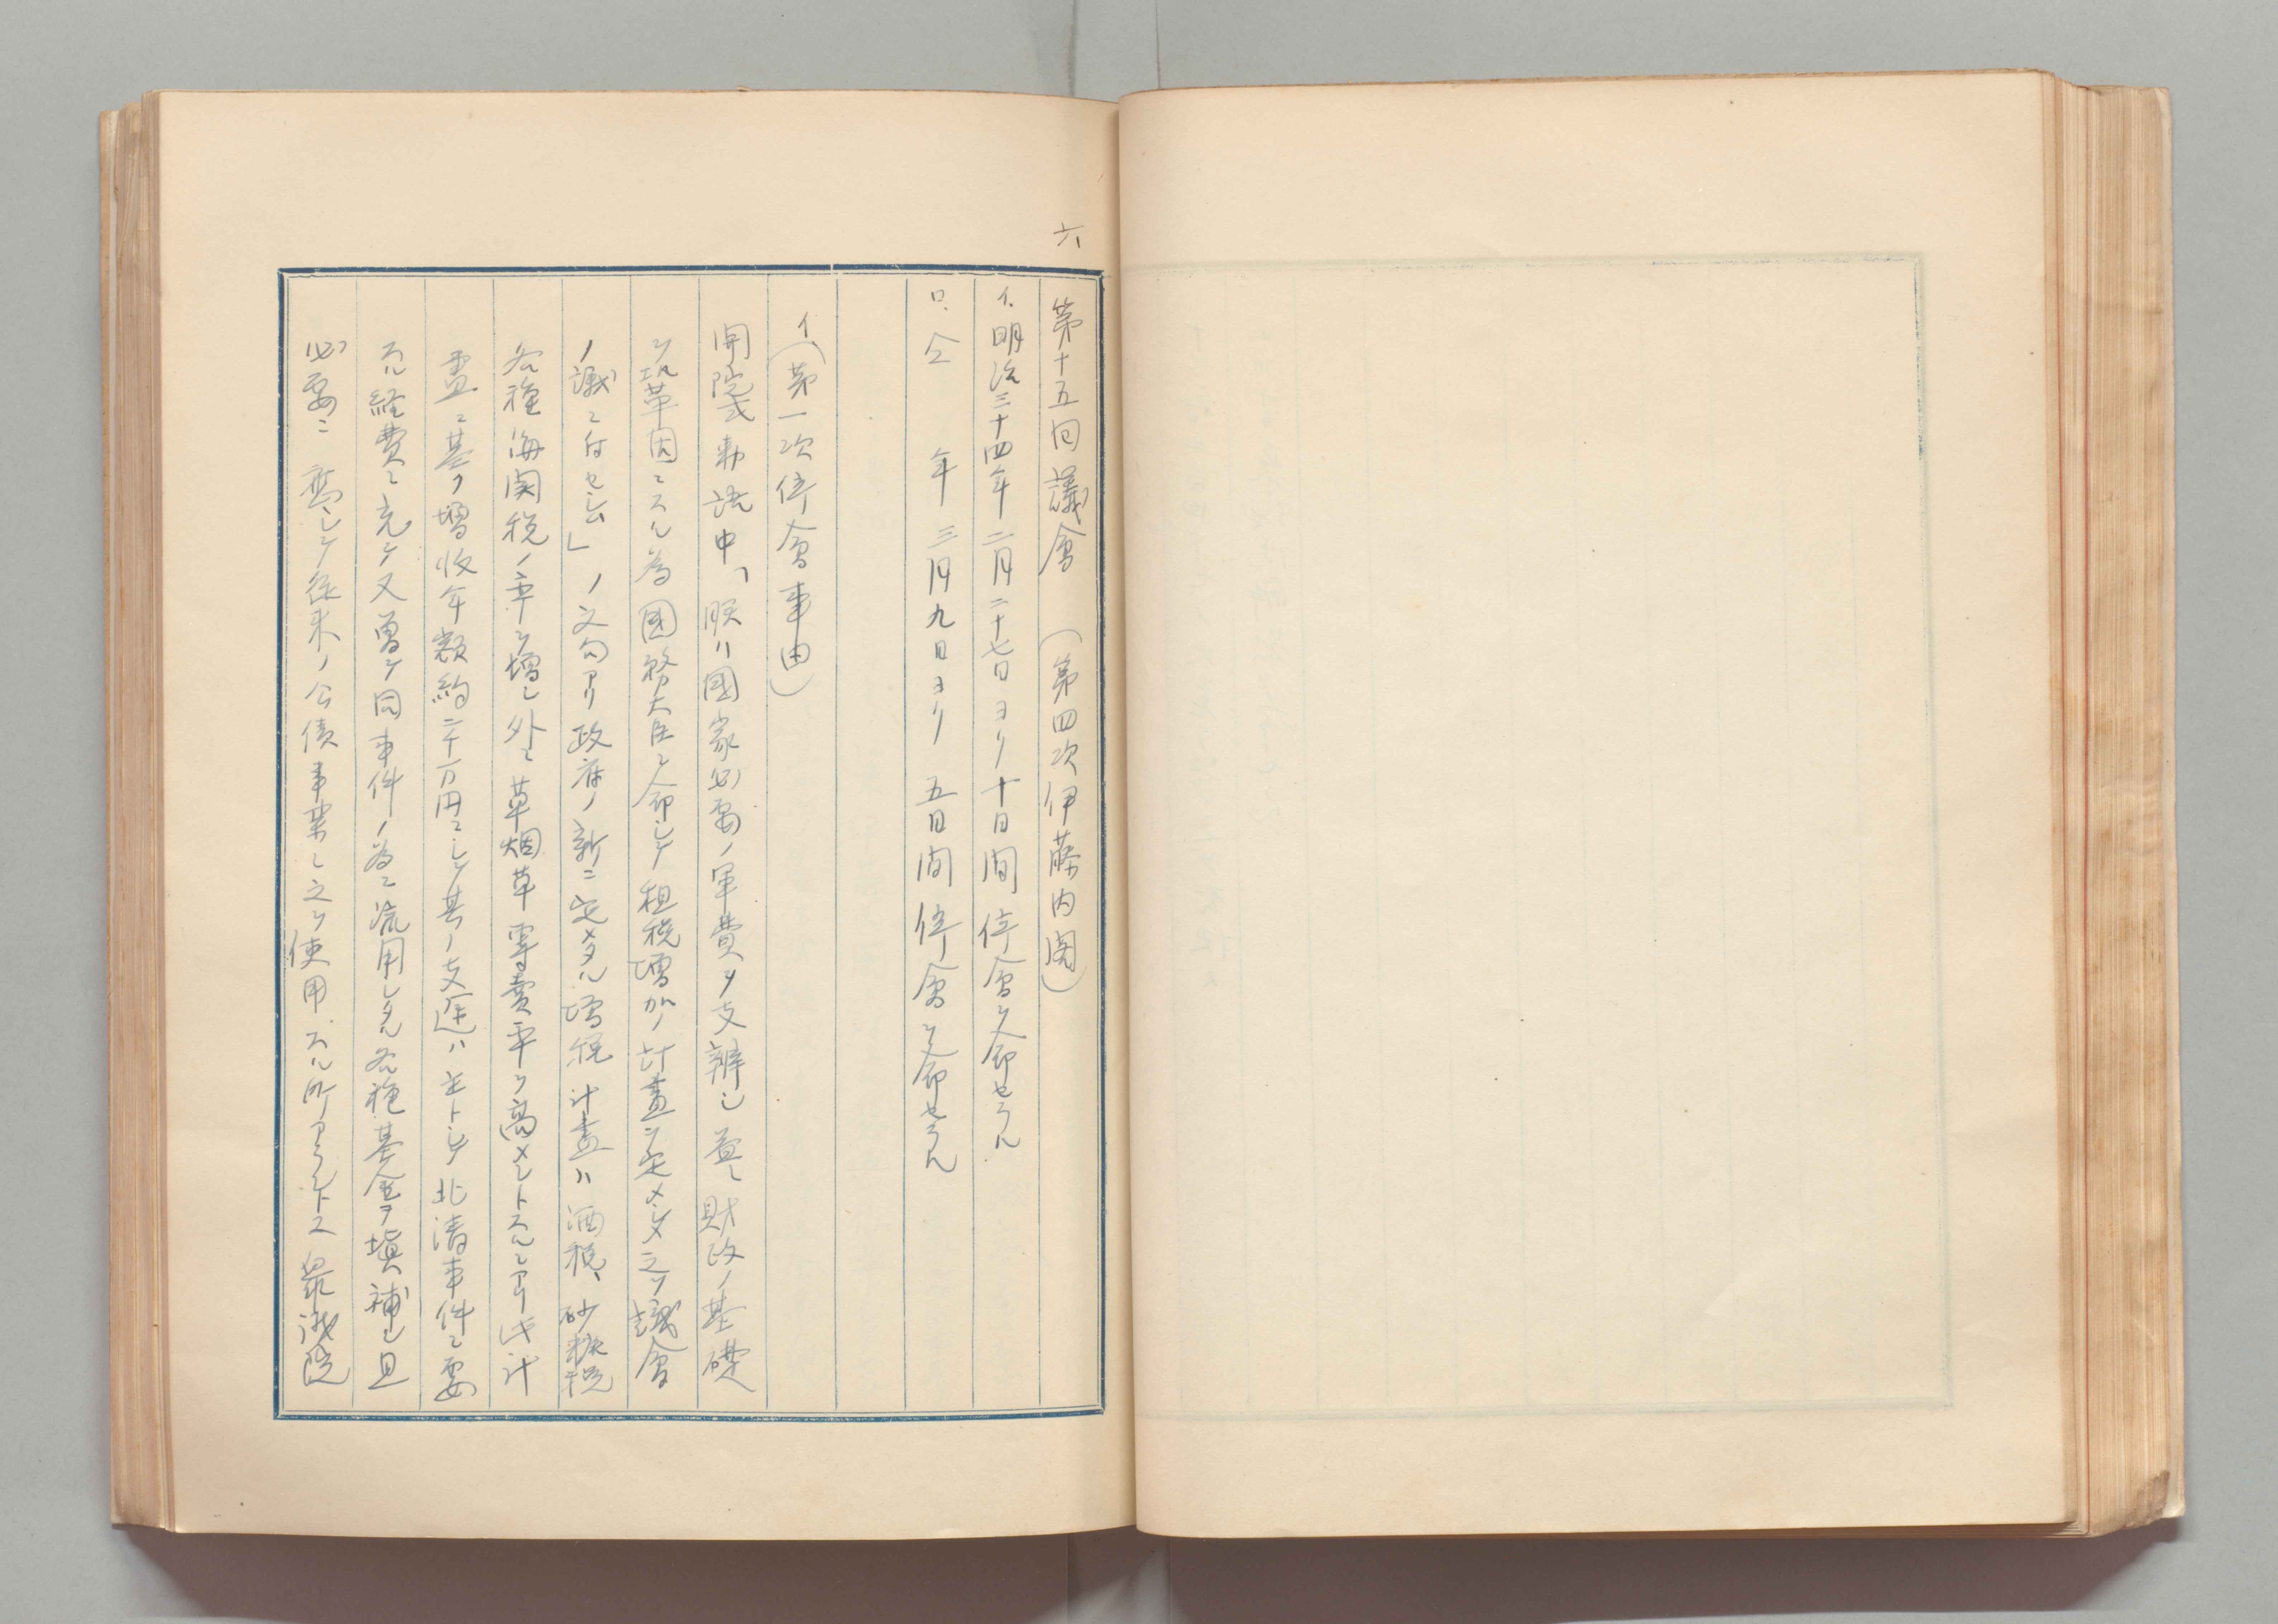 六、
第十五回議會　（第四次伊藤内閣）
イ、明治三十四年二月二十七日ヨリ十日間停會ヲ命セラル
ロ、仝　年三月九日ヨリ五日間停會ヲ命セラル
イ、（第一次停會事由）
開院式勅語中、「朕ハ國家必要ノ軍費ヲ支辨シ並ニ財政ノ基礎
ヲ鞏固ニスル為國務大臣ニ命シテ租税増加ノ計畫ヲ定メシメ之ヲ議會
ノ議ニ付セシム」ノ文句アリ政府ノ新ニ定メタル増税計畫ハ酒税、砂糖税
各種海関税ノ率ヲ増シ外ニ葉烟草専賣率ヲ高メントスルニアリ此計
畫ニ基ク増收年額約二千万円ニシテ其ノ支途ハ主トシテ北清事件ニ要
スル経費ニ充テ又曽テ同事件ノ為ニ流用シタル各種基金ヲ填補シ且
必要ニ應シテ従来ノ公債事業ニ之ヲ使用スル所アラントス衆議院